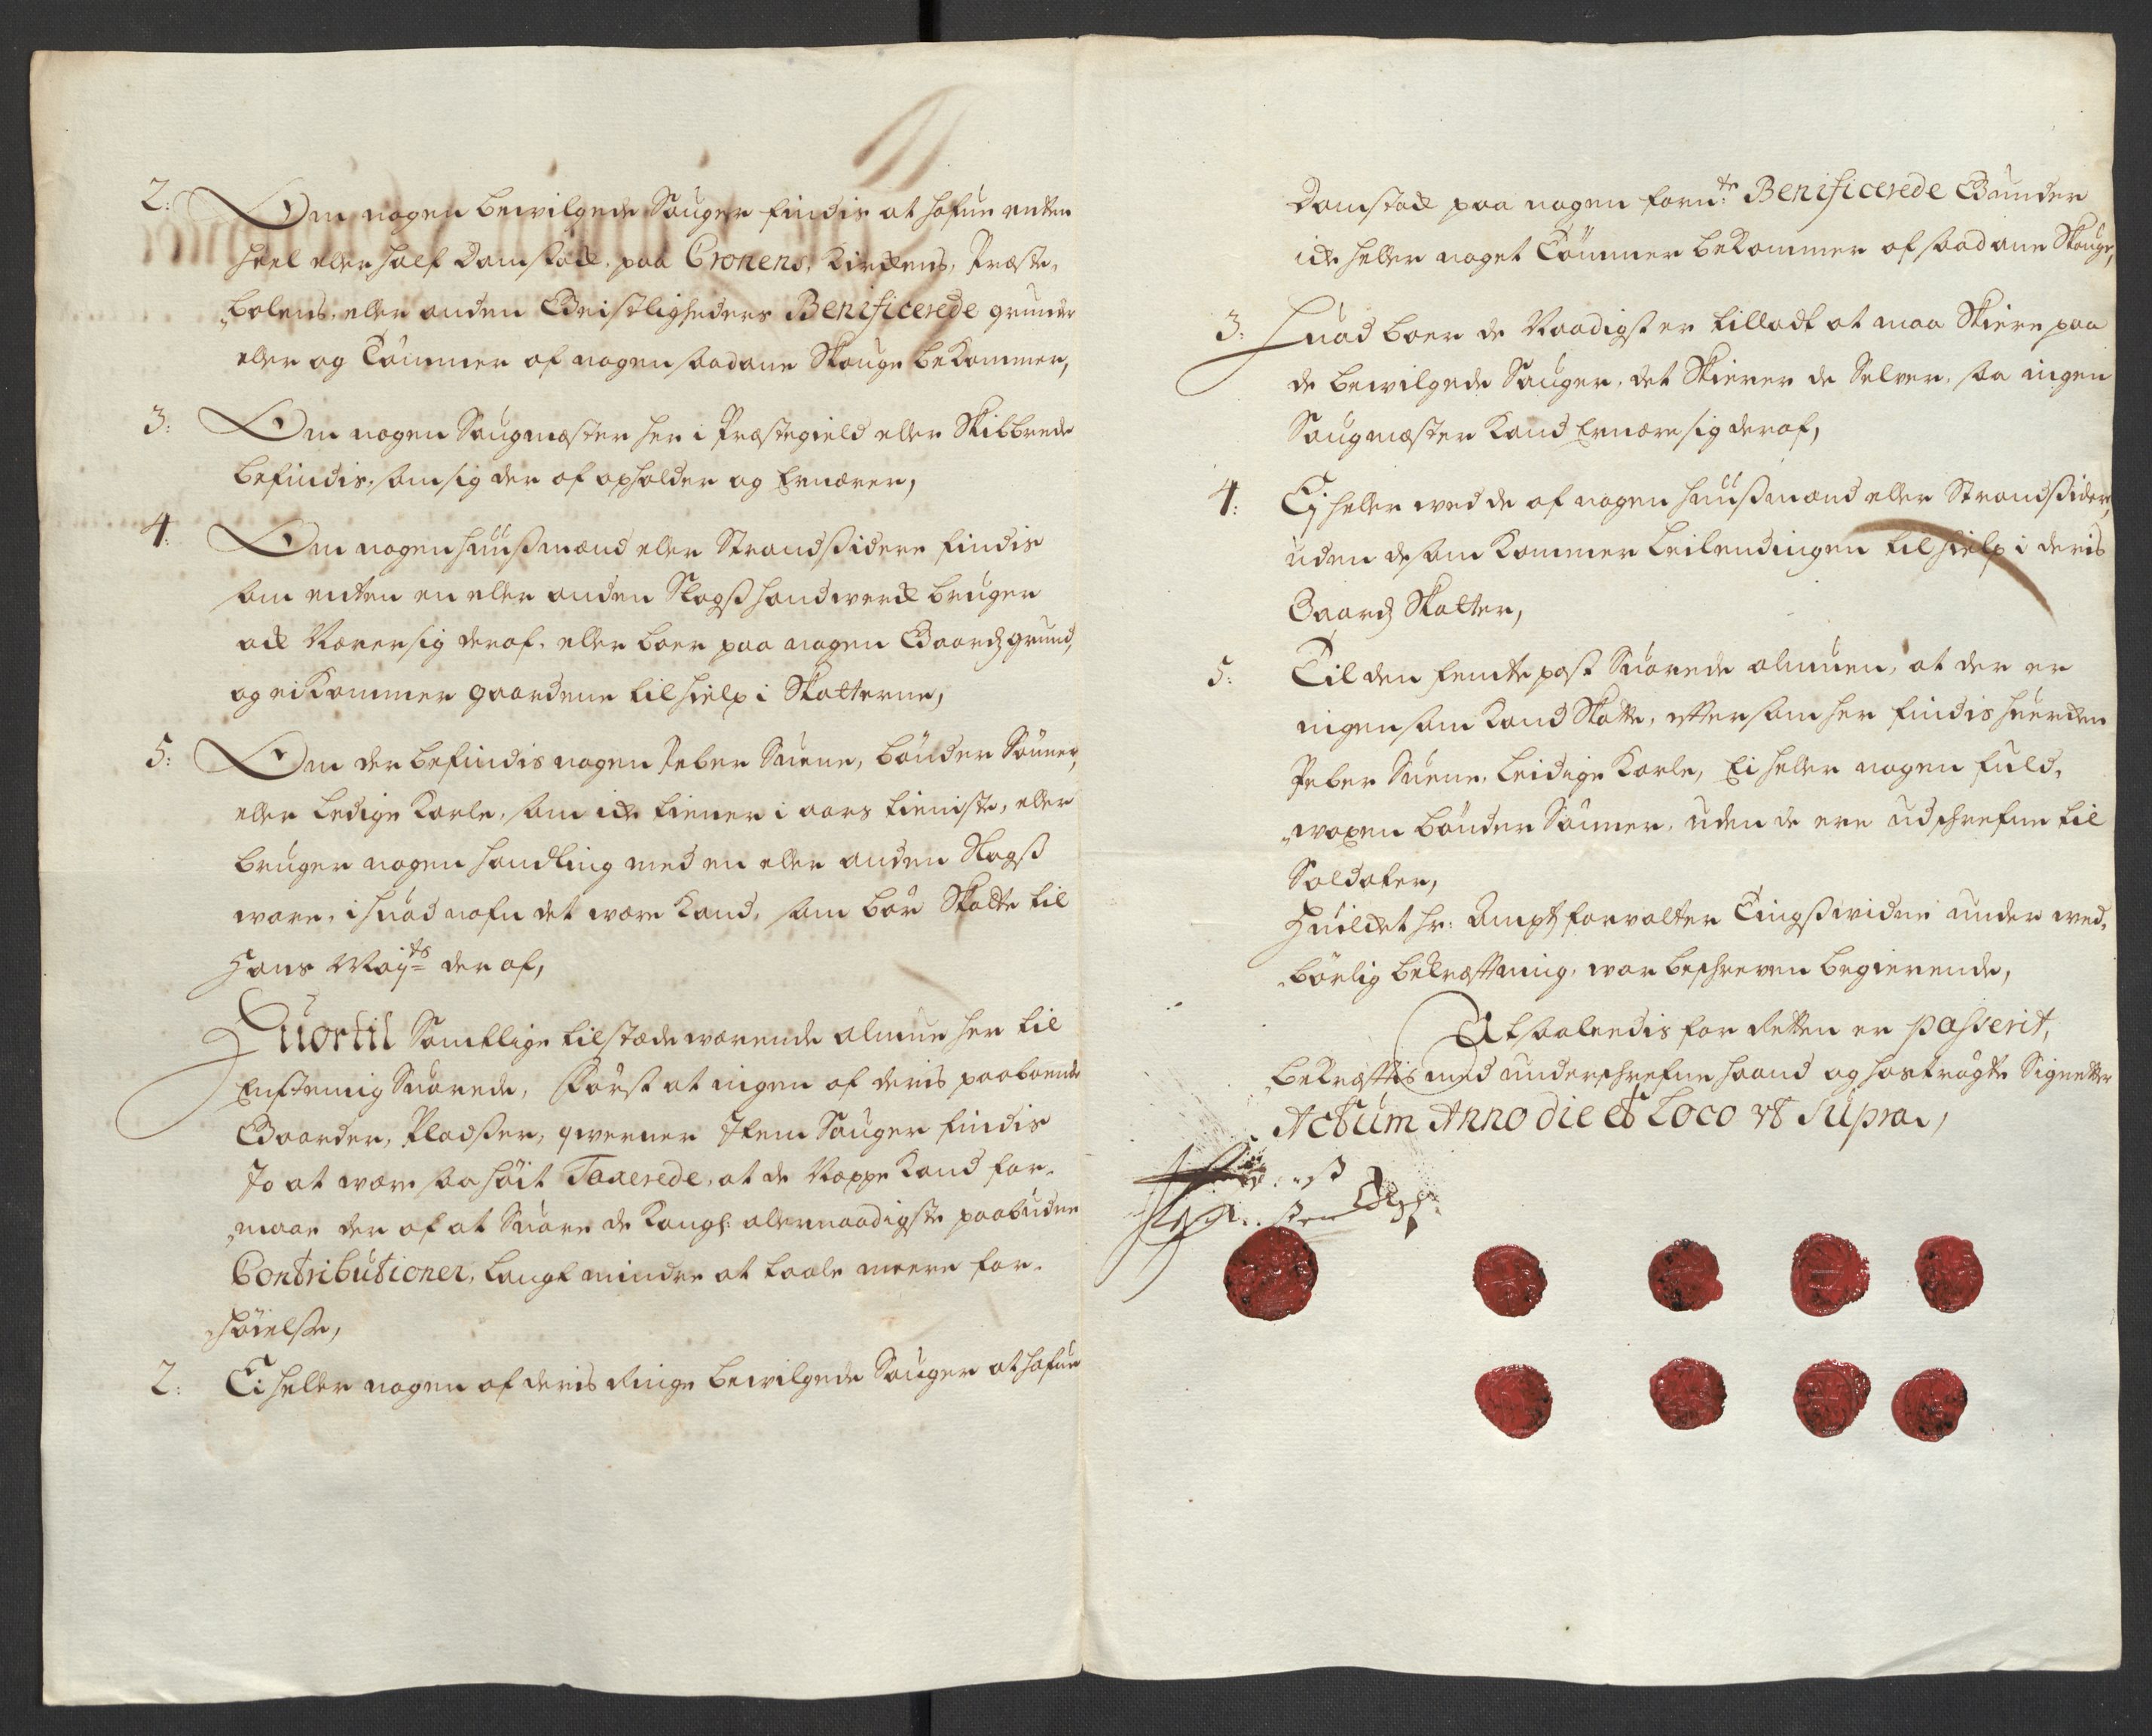 2: Om nogen bevilgede Sauger findis at hafue enten
heel eller half Damstæd, paa Cronens, Kirchens, Præste,
bolens, eller anden Geistligheders Benificerede grunde
eller og Tømmer af nogen saadane Skouge bekommer,
3: Om nogen Saugmæster her i Præstegield eller Skibbrede
befindis, som sig der af opholder og Ernærer,
4. Om nogen huusmænd eller Strandsidere findis
som enten en eller anden Slags handverck bruger
ock Nærer sig deraf, eller boer paa nogen Gaards grund,
og ei Kommer gaardene til hielp i Skatterne,
5: Om der befindis nogen Peber Suene, bønder Sønner,
eller Ledige Karle, som icke tiener i aars tieniste, eller
bruger nogen handling med en eller anden Slags
ware, i huad nafn det være Kand, som bør Skatte til
Hans Mayts der af,
Huortil Samtlige tilstædeværende almue her til
Enstemmig Suarede, Først at ingen af deris paaboende
Gaarder, Pladser, qverner Item Sauger findis
Jo at være saa høit Taxerede, at de Neppe Kand for-
maae der af at Suare de Kongl: allernaadigste paabudne
Contributioner, langt mindre at taale meere for-
høielse,
2: Ei heller nogen af deris Ringe bevilgede Sauger at hafue
Damstæd paa nogen fornte Benificerede Grunder
icke heller noget Tømmer bekommer af saadane Skouge,
3: Huad boer de Naadigst er tilladt at maa Skiere paa
de bevilgede Sauger, det Skierer de Selver, saa ingen
Saugmæster Kand Ernære sig deraf,
4: Ej heller veed de af nogen huusmænd eller Strandsidere,
uden de som Kommer Leilendingen til hielp i deris
Gaards Skatter,
5: Til den femte post Suarede almuen, at der er
ingen som Kand Skatte, eftersom her findis huercken
Peber Suene, Leidige Karle, Ei heller nogen fuld,
voxen bønder Sønner, uden de ere udschrefne til
Soldater,
Huilcket hr: Ampts forvalter Tingsvidne under ved,
børlig bekræftning, var beschreven begierende,
At saaledis for Retten er passerit,
bekræftis med underschrefne haand og hostrøgte Signetter
Actum Anno die et Loco ut Supra,